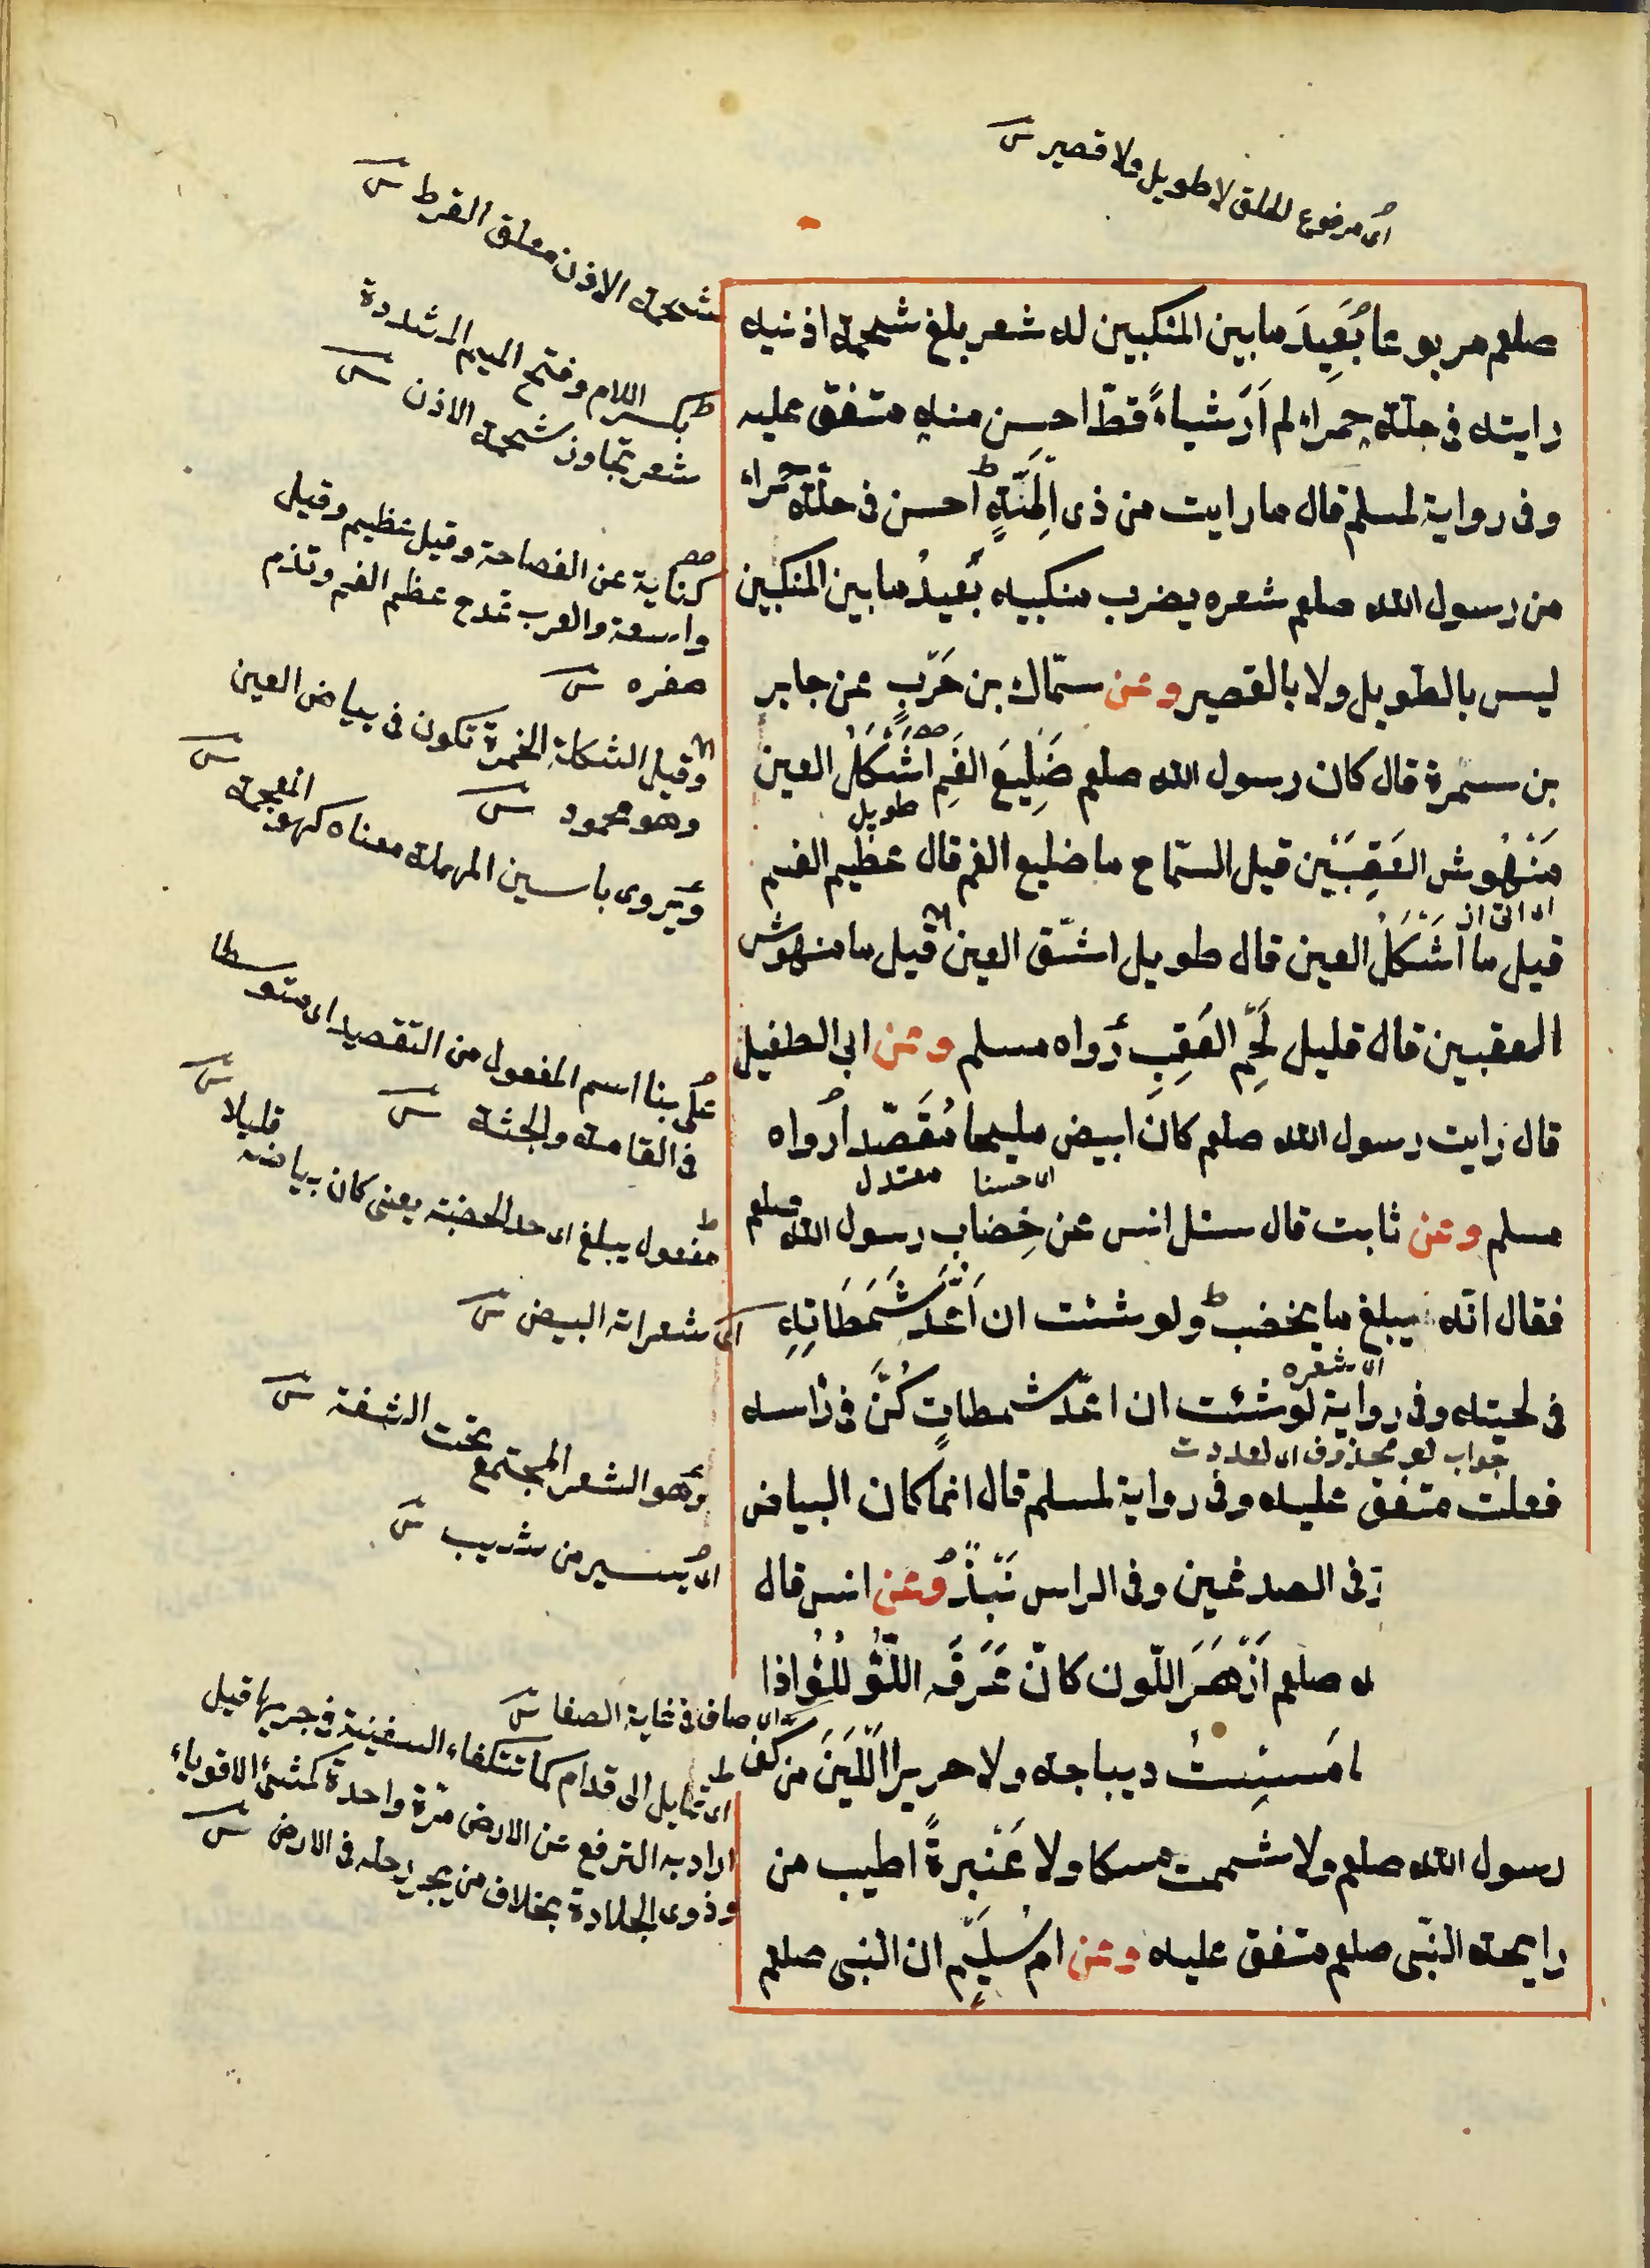 اى مرفوع الخلق لا طويل ولا قصير
صلعم مربوعا بَعِيدَ ما بين المنكبين له شعر بلغ شحمة اذنيه
رايته فى حلّة حمراء لم اَرَ شياءً قطّ احسن منه متفق عليه
وفى رواية لمسلم قال ما رايت من ذى اللِمَّةٍ احسن فى حلّة حمراء
من رسول الله صلعم شعره يضرب منكبيه بَعيدُ ما بين المنكبين
ليس بالطويل ولا بالقصير وعن سمّاك بن حَرْبٍ عن جابر
بن سمرة قال كان رسول الله صلعم ضَلِيعَ الفَمِ اَشْكَلُ العين
طويل
مَنْهُوش العَقِبَيْن قيل السمّاح ما ضليع الفم قال عظيم الفم
قيل ما اَشْكَلُ العين قال طويل اشّق العين قيل ما منهوش
العقبين قال قليل لَحْمِ العَقِبِ رَواه مسلم وعن ابى الطفيل
قال رايت رسول الله صلعم كان ابيض مليحا مُقَصّدا رواه
اى حسنا معتدل
مسلم وعن ثابت قال سئل انس عن خِضابِ رسول الله صلعم
فقال انّه يبلغ ما يخضب ولو شئت ان اَعُدَّ شَمَطَاتِهِ
اى شعره
فى لحيته وفى رواية لو شئت ان اعدّ شمطاتٍ كُنَّ فى رَاسه
جواب لو محذوف اى لعددت
فعلت متفق عليه وفى رواية لمسلم قال انما كان البياض
فى الصدغين وفى الراس نَبْذٌ وعن انس قال
صلعم اَزْهَرَ اللّون كانّ عَرَقَه اللّؤْلُؤُ اذا
مَسِسْتُ ديباجه ولا حريرا اَلْيَنَ من كف
رسول الله صلعم ولا شممت مسكا ولا عَنْبرةً اطيب من
رايحة النّبى صلعم متفق عليه وعن ام سُلَيْمٍ ان النبى صلعم
شحمة الاذن معلق القرط
بكسر اللام وفتح الميم المشددة
شعر تجاوز شحمة الاذن
كناية عن الفصاحة وقيل عظيم وقيل
واسعة والعرب تمدح عظم الفم وتذم
صغره
وقيل الشكلة الحمرة تكون فى بياض العين
وهو محمود
ويروى باسين المهملة معناه كهو المعجمة
على بنا اسم المفعول من التقصيد اى متوسطا
فى القامة والجثة
مفعول يبلغ اى حد الخضبة يعنى كان بياضه قليلا
اى شعراته البيض
وهو الشعر المجتمع تحت الشفة
اى يسير من شيب
اى صاف فى غاية الصفا
اى تمايل الى قدام كما تتكفاء السفينة فى جريها قيل
اراد به الترفع عن الارض مرة واحدة كمشى الاقوياء
وذوى الجلادة بخلاف من يجر رجله فى الارض